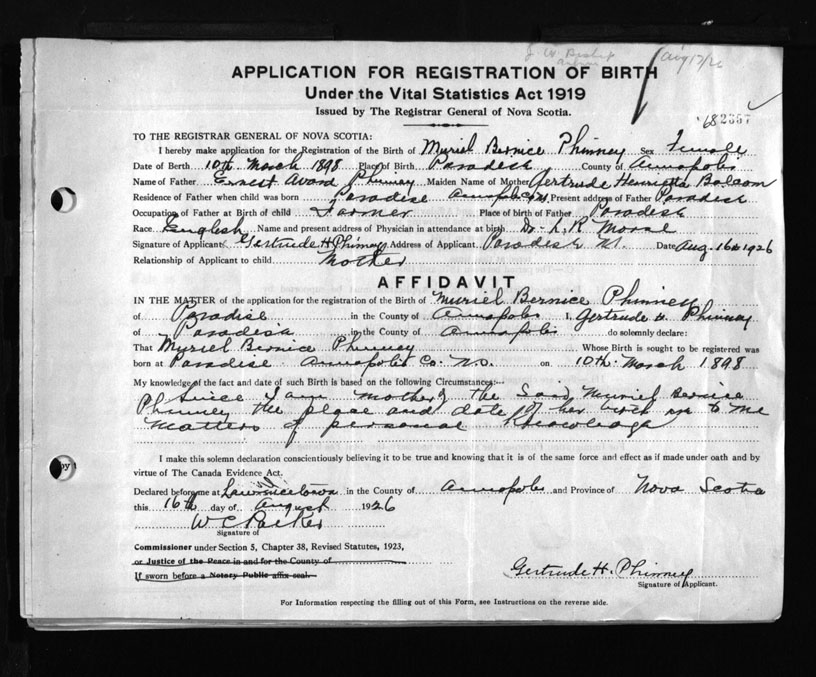 Aug 17/26
APPLICATION FOR REGISTRATION OF BIRTH
Under the Vital Statistics Act 1919
Issued by The Registrar General of Nova Scotia.
TO THE REGISTRAR GENERAL OF NOVA SCOTIA:
I hereby make application for the Registration of the Birth of Muriel Bernice Phinney Sex Female
Date of Birth 10th March 1898 Place of Birth Paradise County of Annapolis
Name of Father Ernest Avard Phinney Maiden Name of Mother Gertrude Henrietta Balcom
Residence of Father when child was born Paradise Annapolis Present address of Father Paradise
Occupation of Father at Birth of child Farmer Place of birth of Father Paradise
Race English Name and present address of Physician in attendance at birth Dr. L. R. Morse
Signature of Applicant Gertrude H Phinney Address of Applicant Paradise Date Aug. 16th 1926
Relationship of Applicant to child Mother
AFFIDAVIT
IN THE MATTER of the application for the registration of the Birth of Muriel Bernice Phinney
of Paradise in the County of Annapolis I, Gertrude H. Phinney
of Paradise in the County of Annapolis do solemnly declare:
That Muriel Bernice Phinney Whose Birth is sought to be registered was
born at Paradise Annapolis Co. N.S. on 10th March 1898
My knowledge of the fact and date of such Birth is based on the following Circumstances:--
Since I am mother of the said Muriel Bernice
Phinney the place and date of her birth are to me
matters of personal knowledge
I make this solemn declaration conscientiously believing it to be true and knowing that it is of the same force and effect as if made under oath and by
virtue of The Canada Evidence Act.
Declared before me at Lawrencetown in the County of Annapolis and Province of Nova Scotia
this 16th day of August 1926
W C Parker
Signature of
Commissioner under Section 5, Chapter 38, Revised Statutes, 1923,
or Justice of the Peace in and for the County of
If sworn before a Notary Public affix seal.
Gertrude H. Phinney
Signature of Applicant.
For Information respecting the filling out of this Form, see Instructions on the reverse side.